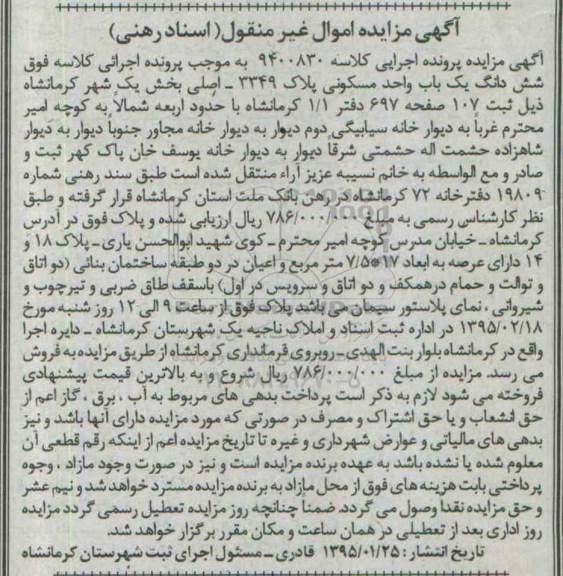 آگهی مزایده اموال غیر منقول( اسناد رهنی)
آگهی مزایده پرونده اجرایی کلاسه ۹۴۰۰۸۳۰ به موجب پرونده اجرائی کلاسه فوق
شش دانگ یک باب واحد مسکونی پلاک ۳۳۴۹ ـ اصلی بخش یک شهر کرمانشاه
ذیل ثبت ۱۰۷ صفحه ۶۹۷ دفتر ۱/۱ کرمانشاه با حدود اربعه شمالاً به کوچه امیر
محترم غرباً به دیوار خانه سیابیگی دوم دیوار به دیوار خانه مجاور جنوباً دیوار به دیوار
شاهزاده حشمت اله حشمتی شرقاً دیوار به دیوار خانه یوسف خان پاک کهر ثبت و
صادر و مع الواسطه به خانم نسیبه عزیز آراء منتقل شده است طبق سند رهنی شماره
۱۹۸۰۹ دفترخانه ۷۲ کرمانشاه در رهن بانک ملت استان کرمانشاه قرار گرفته و طبق
نظر کارشناس رسمی به مبلغ ۷۸۶/۰۰۰/۰۰۰ ریال ارزیابی شده و پلاک فوق در آدرس
کرمانشاه ـ خیابان مدرس کوچه امیر محترم ـ کوی شهید ابوالحسن یاری ـ پلاک ۱۸ و
۱۴ دارای عرصه به ابعاد ۱۷*۷/۵ متر مربع و اعیان در دو طبقه ساختمان بنائی (دو اتاق
و توالت و حمام درهمکف و دو اتاق و سرویس در اول) باسقف طاق ضربی و تیرچوب و
شیروانی ، نمای پلاستور سیمان می باشد پلاک فوق از ساعت ۹ الی ۱۲ روز شنبه مورخ
۱۳۹۵/۰۲/۱۸ در اداره ثبت اسناد و املاک ناحیه یک شهرستان کرمانشاه ـ دایره اجرا
واقع در کرمانشاه بلوار بنت الهدی ـ روبروی فرمانداری کرمانشاه از طریق مزایده به فروش
می رسد. مزایده از مبلغ ۷۸۶/۰۰۰/۰۰۰ ریال شروع و به بالاترین قیمت پیشنهادی
فروخته می شود لازم به ذکر است پرداخت بدهی های مربوط به آب ، برق ، گاز اعم از
حق انشعاب و یا حق اشتراک و مصرف در صورتی که مورد مزایده دارای آنها باشد و نیز
بدهی های مالیاتی و عوارض شهرداری و غیره تا تاریخ مزایده اعم از اینکه رقم قطعی آن
معلوم شده یا نشده باشد به عهده برنده مزایده است و نیز در صورت وجود مازاد ، وجوه
پرداختی بابت هزینه های فوق از محل مازاد به برنده مزایده مسترد خواهد شد و نیم عشر
و حق مزایده نقدا وصول می گردد. ضمناً چنانچه روز مزایده تعطیل رسمی گردد مزایده
روز اداری بعد از تعطیلی در همان ساعت و مکان مقرر برگزار خواهد شد.
تاریخ انتشار : ۱۳۹۵/۰۱/۲۵ قادری ـ مسئول اجرای ثبت شهرستان کرمانشاه